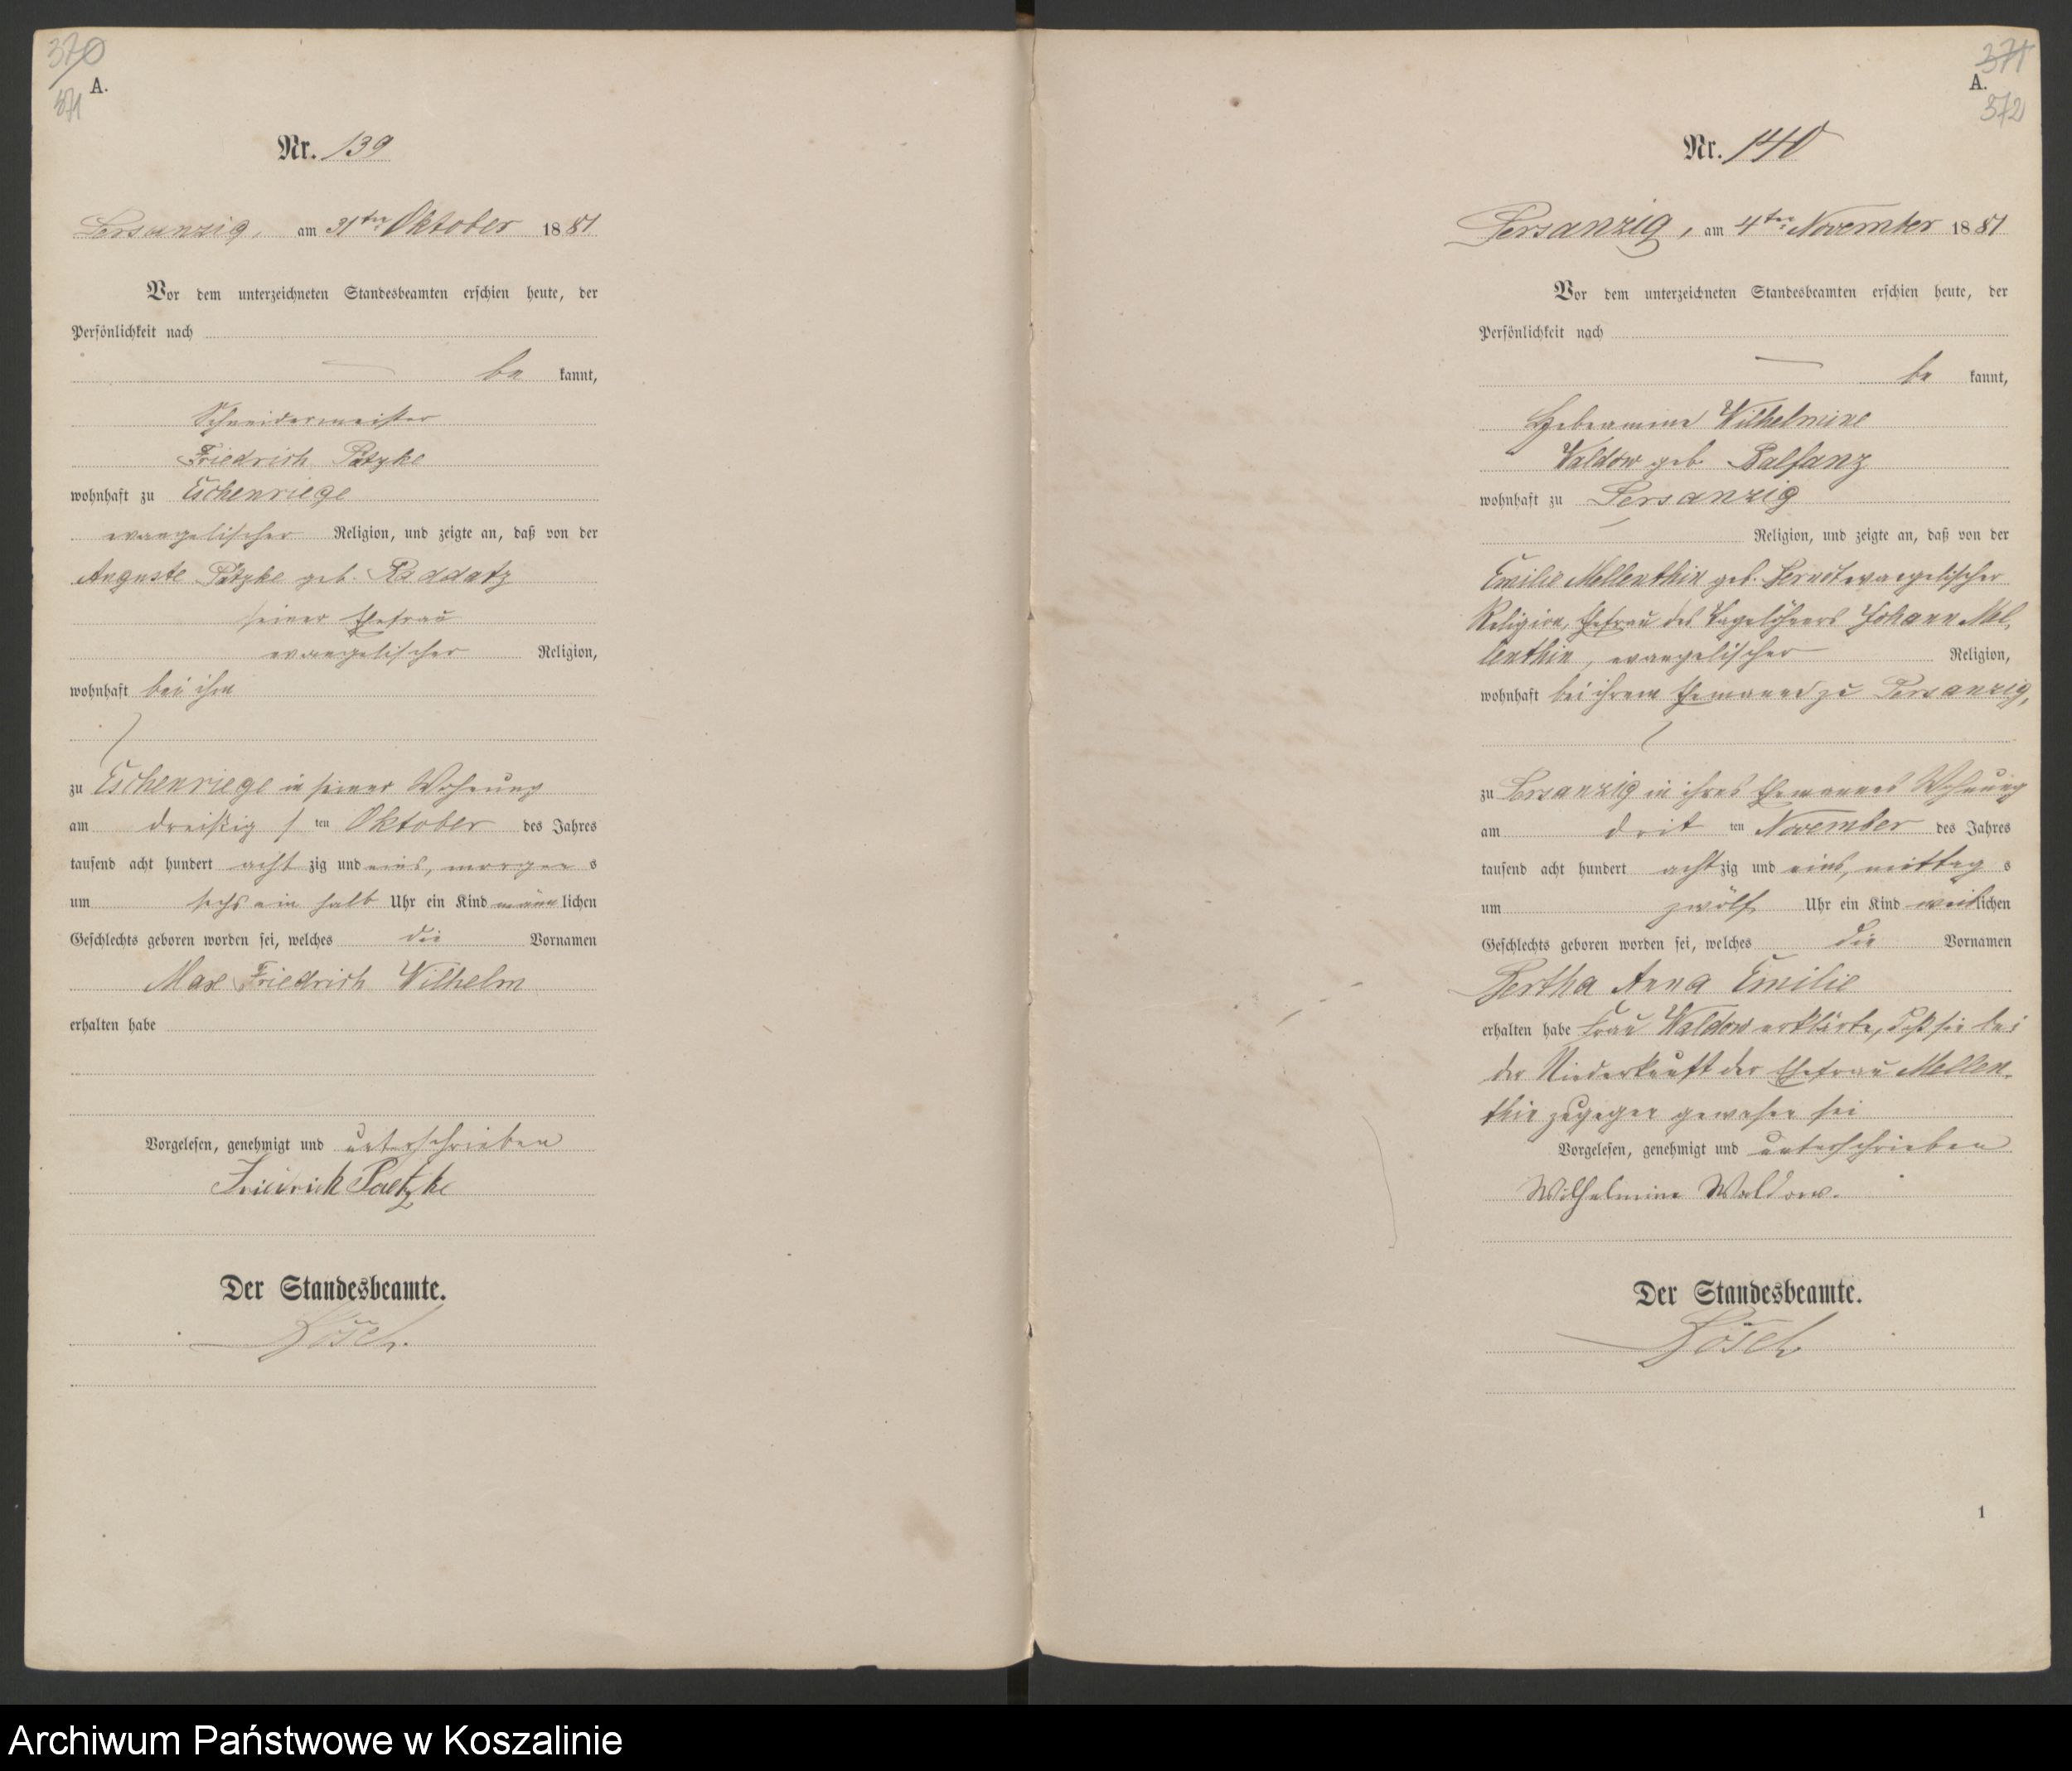 370
371
A.
Nr. 139
Persanzig, am 31ten Oktober 1881
Vor dem unterzeichneten Standesbeamten erschien heute, der
Persönlichkeit nach
be kannt,
Schneidermeister
Friedrich Patzke
wohnhaft zu Eschenriege
evangelischer Religion, und zeigte an, daß von der
Auguste Patzke geb. Raddatz
seiner Ehefrau
evangelischer Religion,
wohnhaft bei ihm
zu Eschenriege in seiner Wohnung
am dreißig ten Oktober des Jahres
tausend acht hundert acht zig und eins, morgen s
um sechs ein halb Uhr ein Kind männ lichen
Geschlechts geboren worden sei, welches die Vornamen
Max Friedrich Wilhelm
erhalten habe
Vorgelesen, genehmigt und unterschrieben
Friedrich Paetzke
Der Standesbeamte.
371
A.
372
Nr. 140
Persanzig, am 4ten November 1881
Vor dem unterzeichneten Standesbeamten erschien heute, der
Persönlichkeit nach
be kannt,
Hebeamme Wilhelmine
Waldow geb. Balfanz
wohnhaft zu Persanzig
Religion, und zeigte an, daß von der
Emilie Mellenthin geb. Berndt evangelischer
Religion, Ehefrau des Tagelöhners Johann Mel,
lenthin, evangelischer Religion,
wohnhaft bei ihrem Ehemanne zu Persanzig,
zu Persanzig in ihres Ehemannes Wohnung
am drit ten November des Jahres
tausend acht hundert acht zig und eins, mittag s
um zwölf Uhr ein Kind weib lichen
Geschlechts geboren worden sei, welches die Vornamen
Bertha Anna Emilie
erhalten habe Frau Waldow erklärte, daß sie bei
der Niederkunft der Ehefrau Mellen-
thin zugegen gewesen sei
Vorgelesen, genehmigt und unterschrieben
Wilhelmine Waldow.
Der Standesbeamte.
1
Archiwum Państwowe w Koszalinie